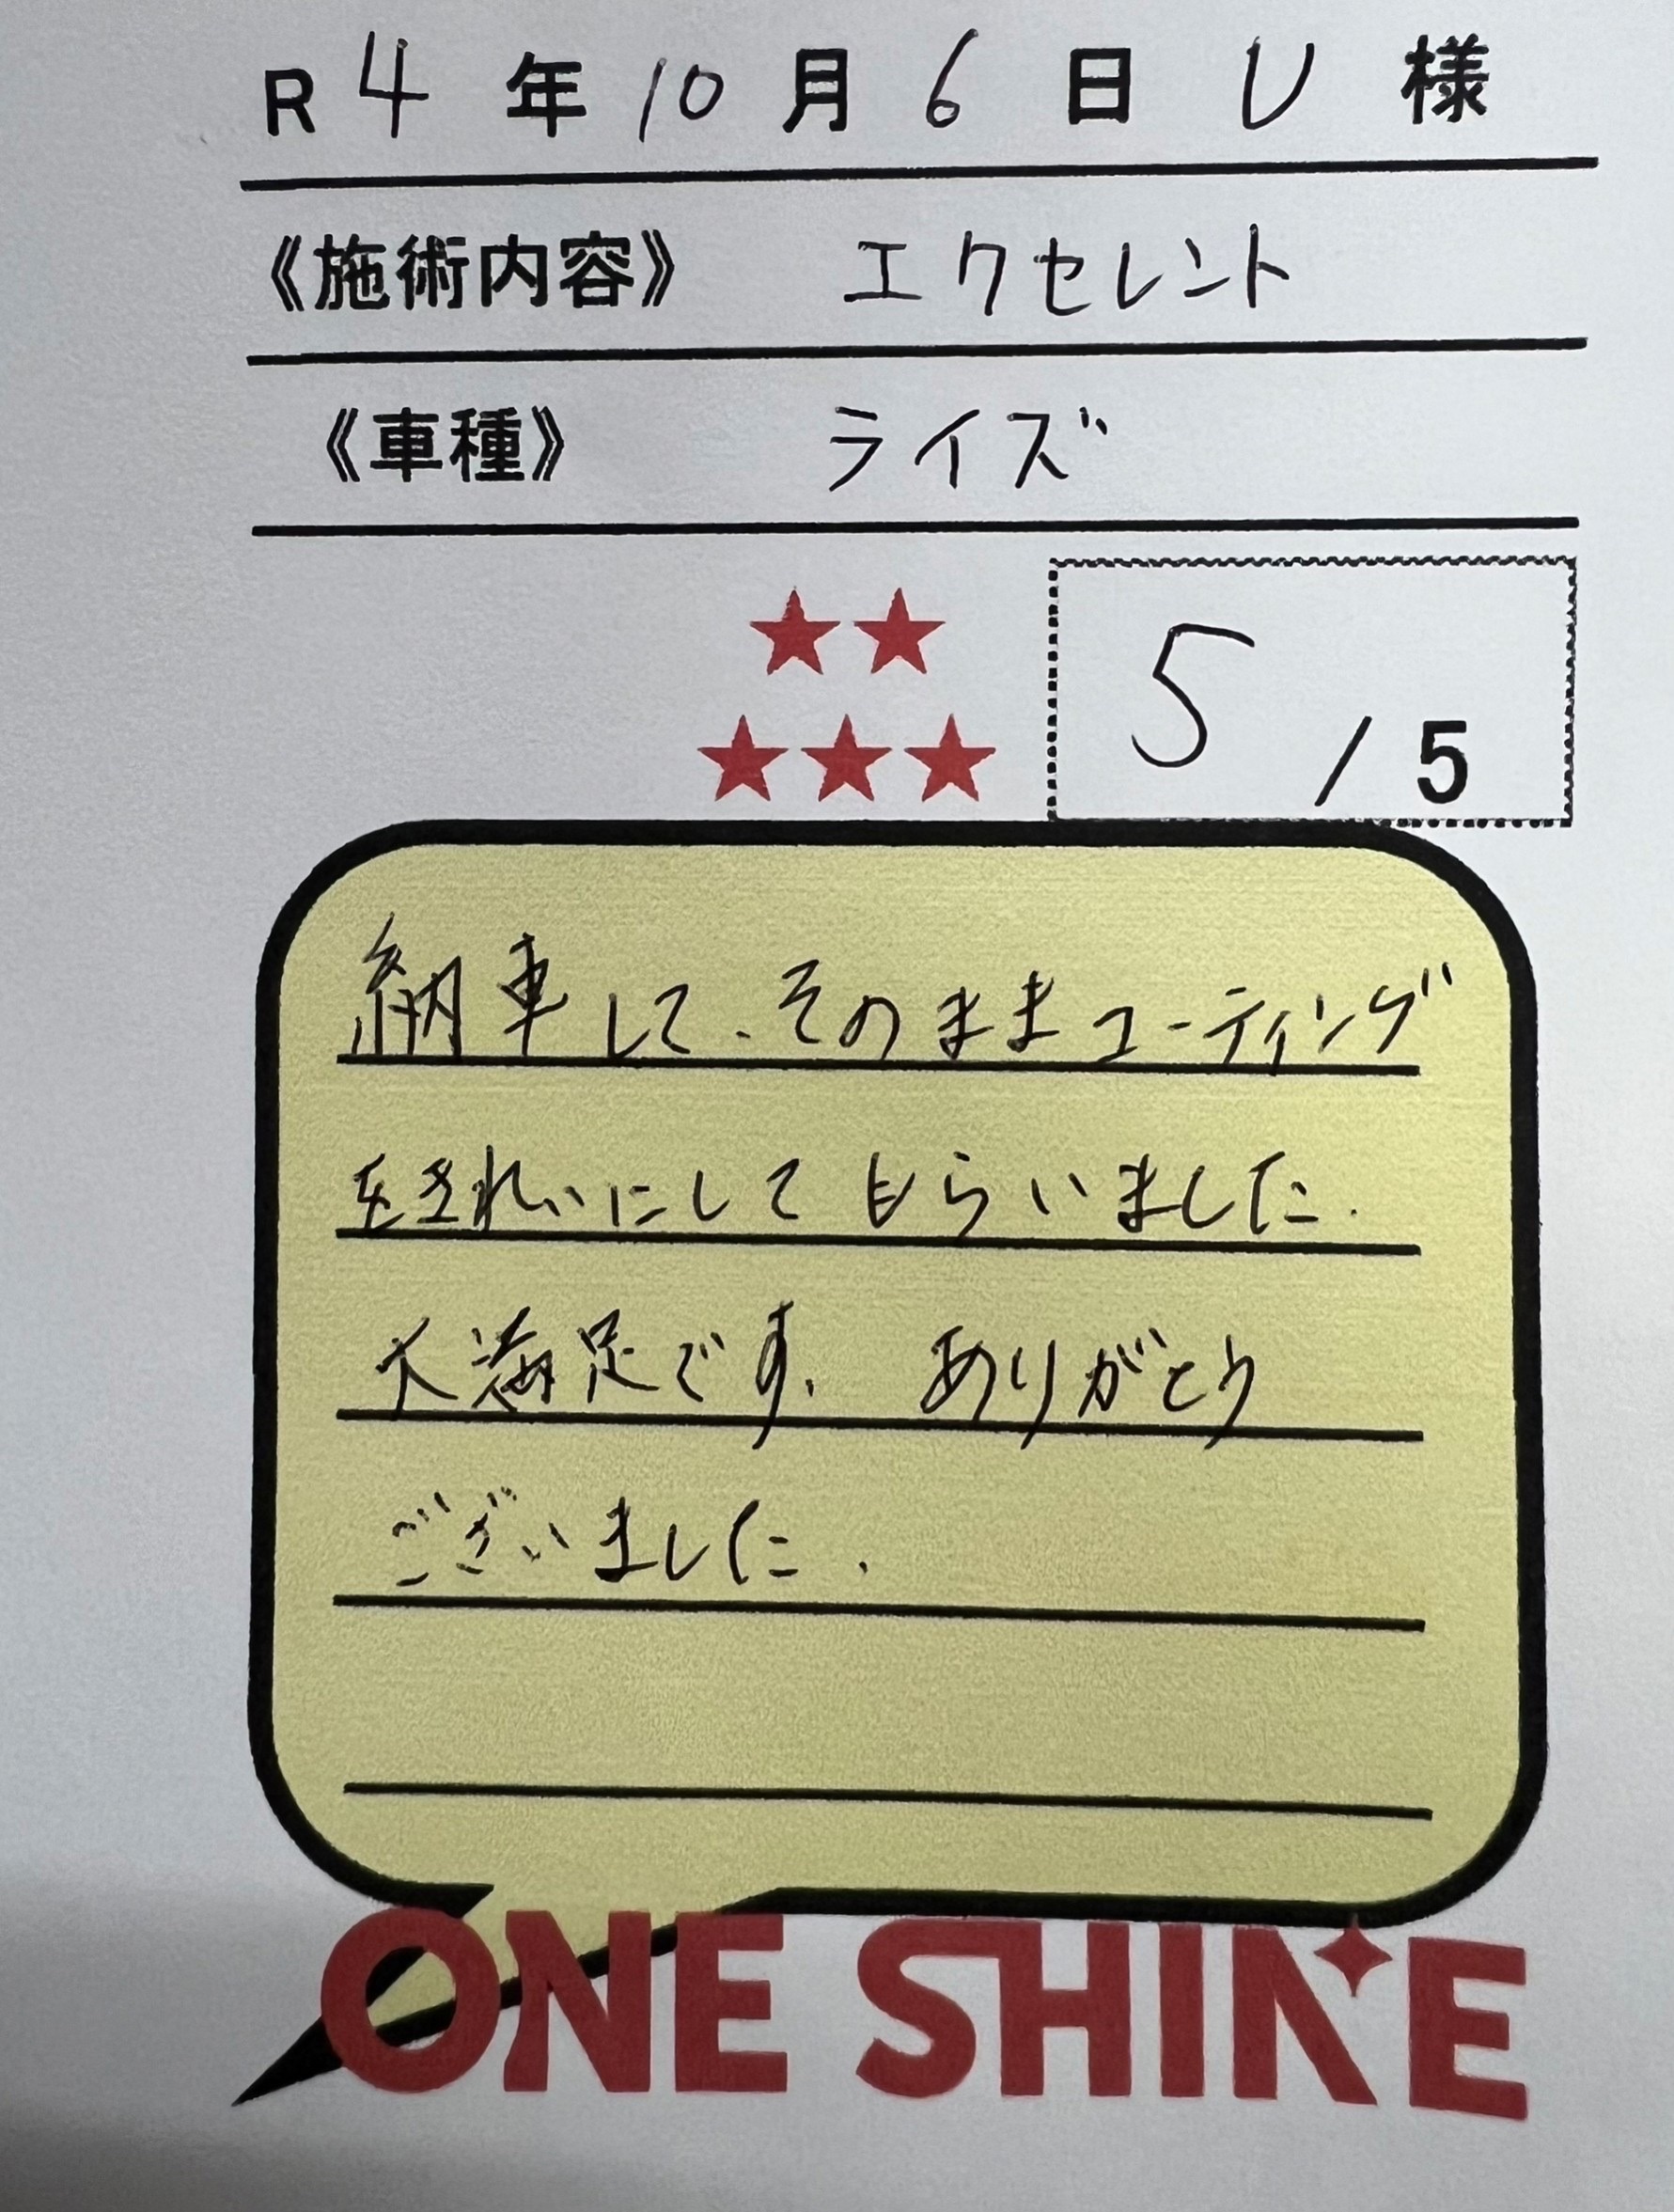 R 4 年 10 月 6 日 U 様
《施術内容》 エクセレント
《車種》 ライズ
★★
★★★
5 / 5
納車して、そのままコーティング
をきれいにしてもらいました.
大満足です. ありがとう
ございました.
ONE SHINE